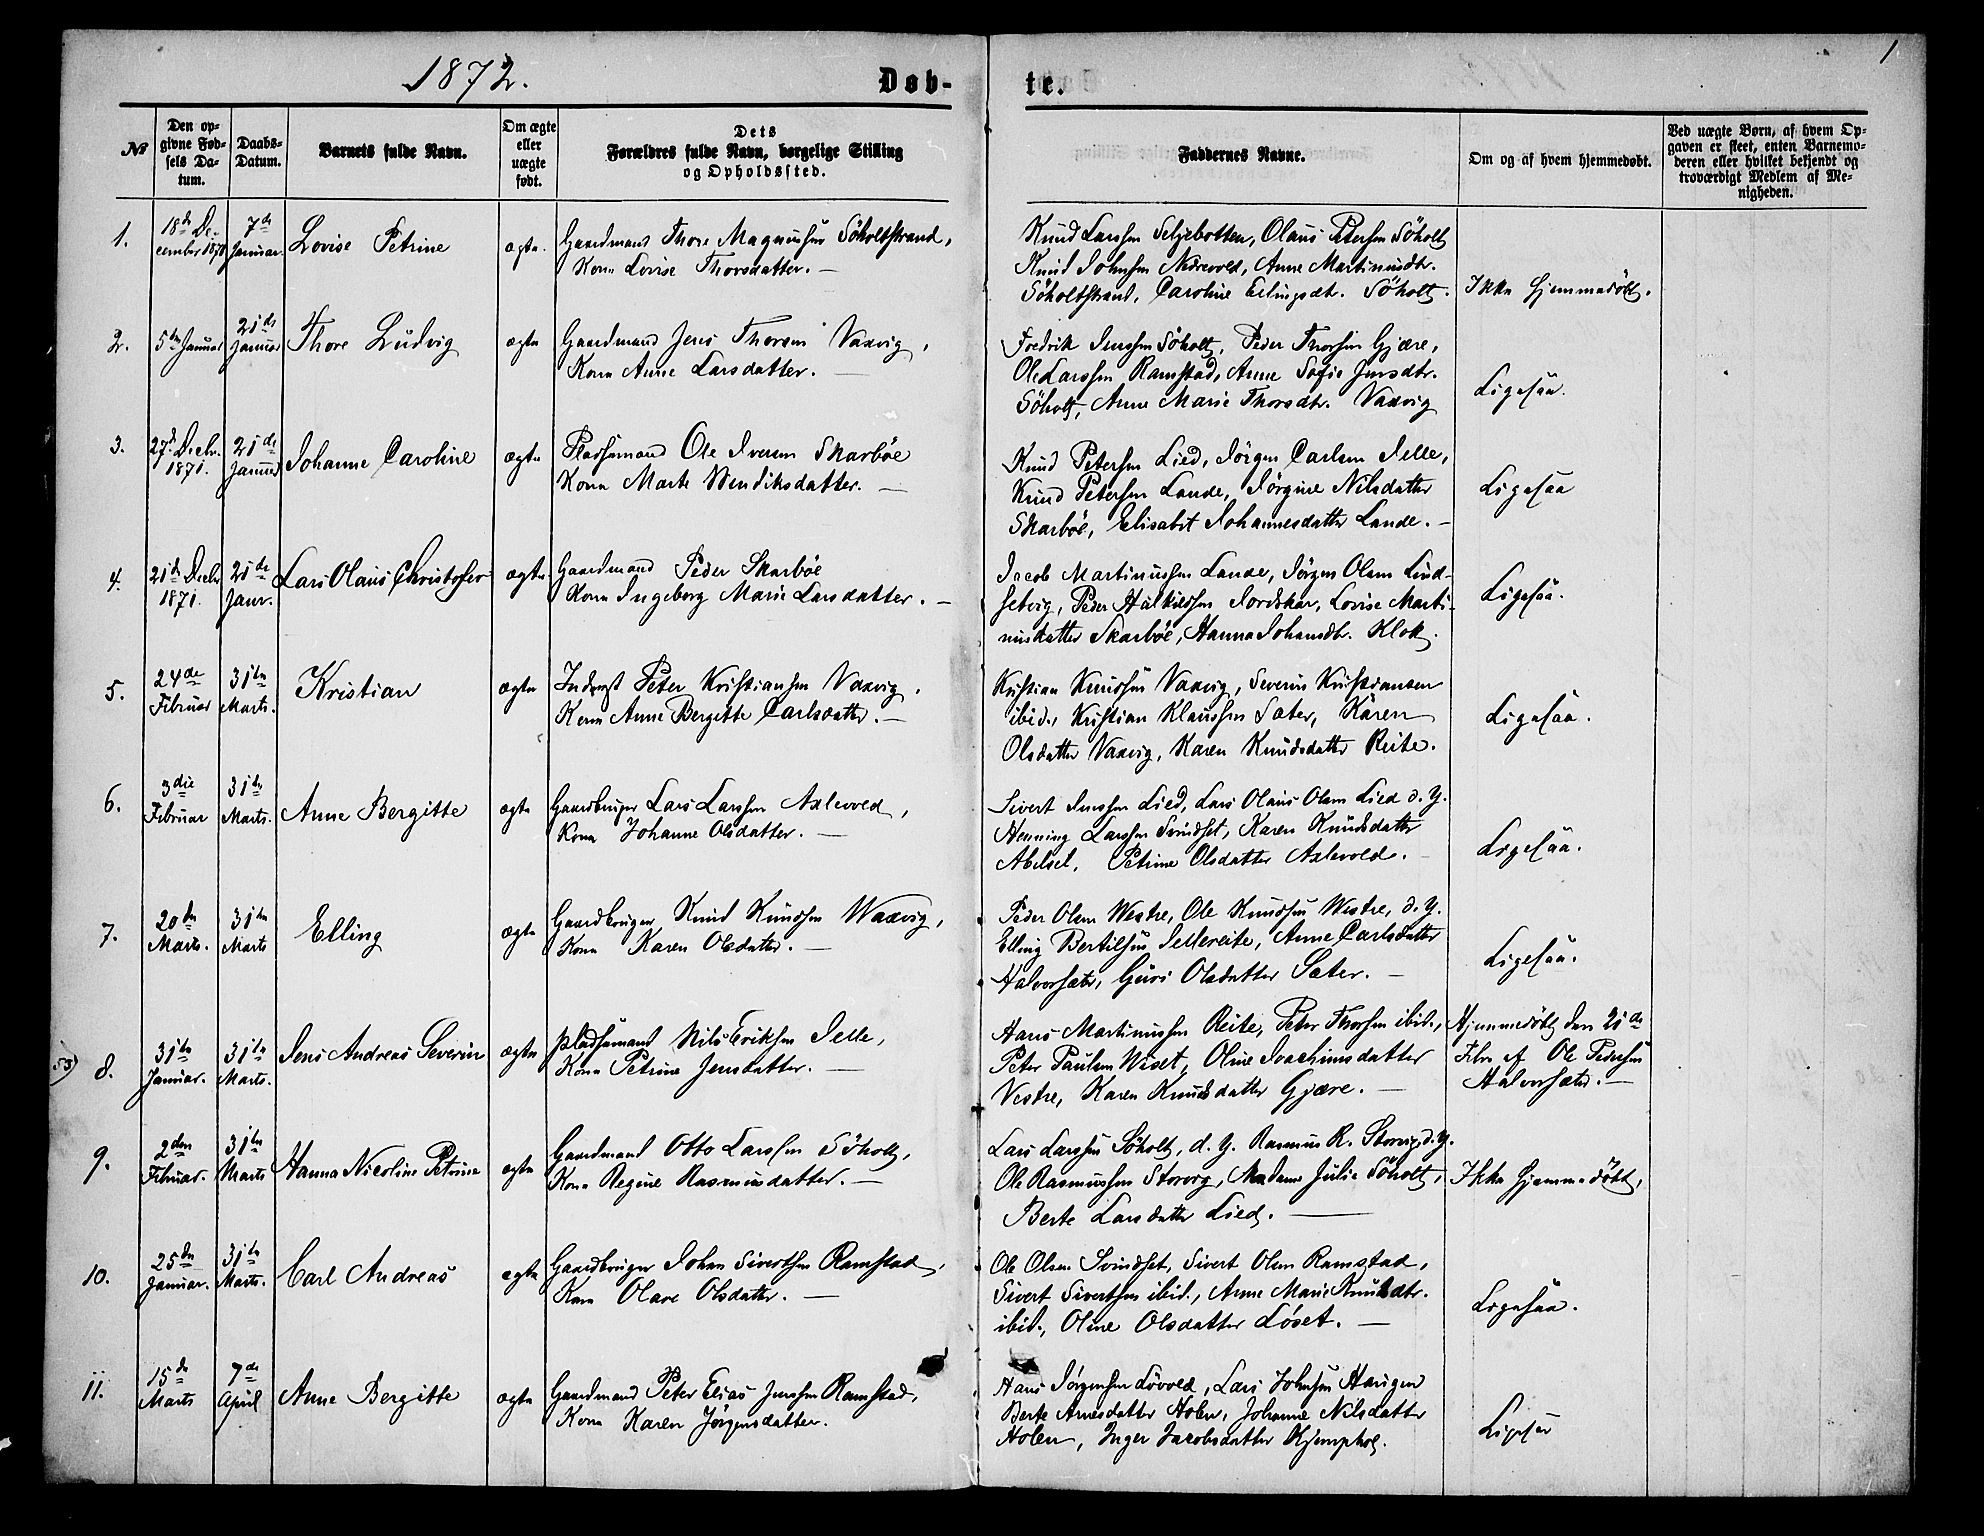 1
1872.
Døb-
te.
№
Den opgivne Fødsels Datum.
Daabs-Datum.
Barnets fulde Navn.
Om ægte eller uægte født.
Dets Forældres fulde Navn, borgelige Stilling og Opholdssted.
Faddernes Navne.
Om og af hvem hjemmedøbt.
Ved uægte Børn, af hvem Opgaven er skeet, enten Barnemoderen eller hvilket bekjendt og troværdigt Medlem af Menigheden.
1.
18de December 1871
7de Januar
Lovise Petrine
ægte.
Gaardmand Thore Magnussen Söholtstrand,
Kone Lovise Thorsdatter. —
Knud Larssen Seljebotten, Olaus Petersen Söholt
Knud Johnsen Nedrevold, Anne Martinusdtr.
Söholtstrand, Caroline Erlingsdtr. Söholt.
Ikke hjemmedöbt.
2.
5te Januar
21de Januar
Thore Ludvig
ægte
Gaardmand Jens Thorsen Vaxvig,
Kone Anne Larsdatter. —
Fredrik Jenssen Söholt, Peder Thorsen Gjære,
Ole Larssen Ramstad, Anne Sofie Jensdtr.
Söholt, Anne Marie Thorsdtr. Vaxvig
Ligesaa.
3.
27de Decbr. 1871.
21de Januar
Johanne Caroline
ægte
Pladsemand Ole Iversen Skarböe
Kone Marte Bendiksdatter. —
Knud Petersen Lied, Jörgen Carlsen Selle,
Knud Petersen Lande, Jörgine Nilsdatter
Skarböe, Elisabet Johannesdatter Lande. —
Ligesaa
4.
21de Decbr 1871.
21de Janr.
Lars Olaus Christofer
ægte
Gaardmand Peder Skarböe
Kone Ingeborg Marie Larsdatter. —
Jacob Martinussen Lande, Jörgen Olsen Lind-
setvig, Peder Halkildsen Jordskar, Lovise Marti-
nusdatter Skarböe, Hanna Johansdtr. Klok.
Ligesaa.
5.
24de Februar
31te Marts.
Kristian
ægte
Inderst Peter Kristiansen Vaxvig,
Kone Anne Bergitte Carlsdatter. —
Kristian Knudsen Vaxvig, Severin Kristiansen
ibid., Kristian Klaussen Sæter, Karen
Olsdatter Vaxvig, Karen Knudsdatter Reite.
Ligesaa.
6.
3die Februar
31te Marts.
Anne Bergitte
ægte
Gaardbruger Lars Larssen Axlevold,
Kone Johanne Olsdatter. —
Sivert Jenssen Lied, Lars Olaus Olsen Lied d. y.
Henning Larssen Svindset, Karen Knudsdatter
Abelset, Petrine Olsdatter Axlevold. —
Ligesaa.
7.
20de Marts.
31te Marts
Elling
ægte
Gaardbruger Knud Knudsen Waxvig,
Kone Karen Olsdatter. —
Peder Olsen Westre, Ole Knudsen Westre, d. y.
Elling Bertilsen Sellereite, Anne Carlsdatter
Halvorsæter, Guri Olsdatter Sæter. —
Ligesaa.
8.
31te Januar.
31te Marts.
Jens Andreas Severin
ægte
Pladsemand Nils Eriksen Selle,
Kone Petrine Jensdatter. —
Hans Martinussen Reite, Peter Thorsen ibid.,
Peter Paulsen Wiset, Oline Joachimsdatter
Vestre, Karen Knudsdatter Gjære. —
Hjemmedöbt den 21de
Febr af Ole Pedersen
Halvorsæter. —
9.
2den Februar.
31te Marts
Hanna Nicoline Petrine
ægte
Gaardmand Otto Larssen Söholt,
Kone Regine Rasmusdatter. —
Lars Larssen Söholt, d. y. Rasmus R. Storvig d. y.
Ole Rasmussen Storvig, Madame Julie Söholt,
Berte Larsdatter Lied. —
Ikke hjemmedöbt,
10.
25de Januar.
31te Marts.
Carl Andreas
ægte
Gaardbruger Johan Sivertsen Ramstad,
Kone Olave Olsdatter. —
Ole Olsen Svindset, Sivert Olsen Ramstad,
Sivert Sivertsen ibid., Anne Marie Knudsdtr.
ibid., Oline Olsdatter Løset. —
Ligesaa.
11.
15de Marts
7de April
Anne Bergitte
ægte
Gaardmand Peter Elias Jenssen Ramstad,
Kone Karen Jörgensdatter.
Hans Jørgensen Lövold, Lars Johnsen Haugen
Berte Arnesdatter Holen, Johanne Nilsdatter
Holen, Inger Jacobsdatter Kjemphol.
Ligesaa